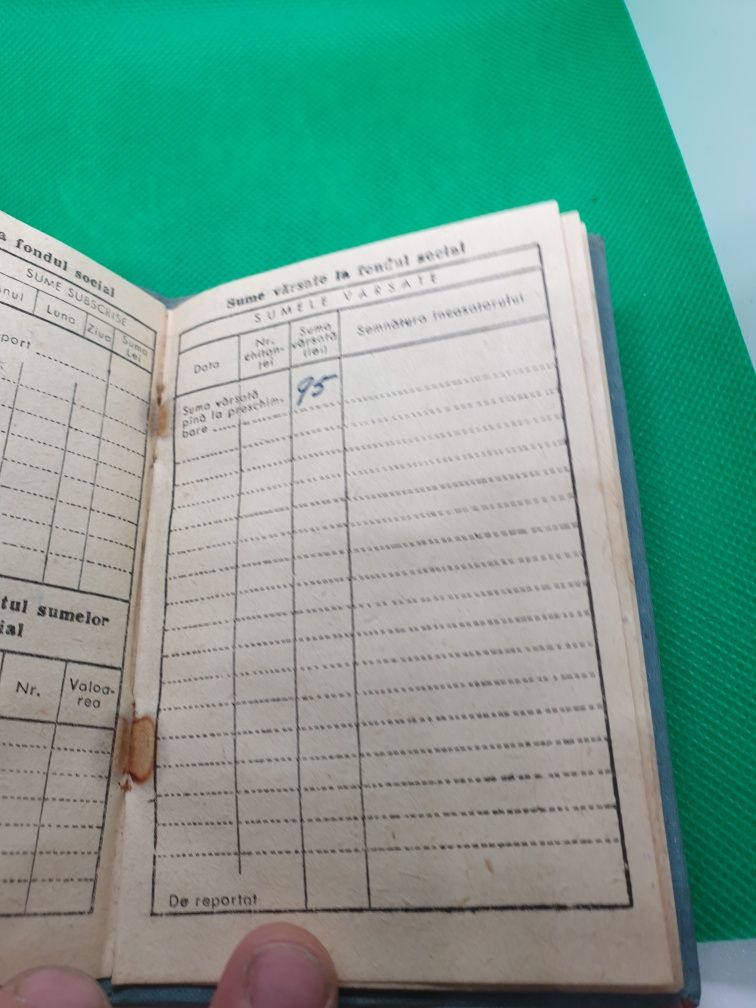 a fondul social
SUME SUBSCRISE
Luna
Ziua
Suma
Lei
port
tul sumelor
ial
Nr.
Valoa-
rea
Sume vărsate la fondul social
SUMELE VĂRSATE
Data
Nr.
chitan-
ței
Suma
vărsată
(lei)
Semnătura încasatorului
Suma vărsată
pînă la preschim-
bare
95
De reportat